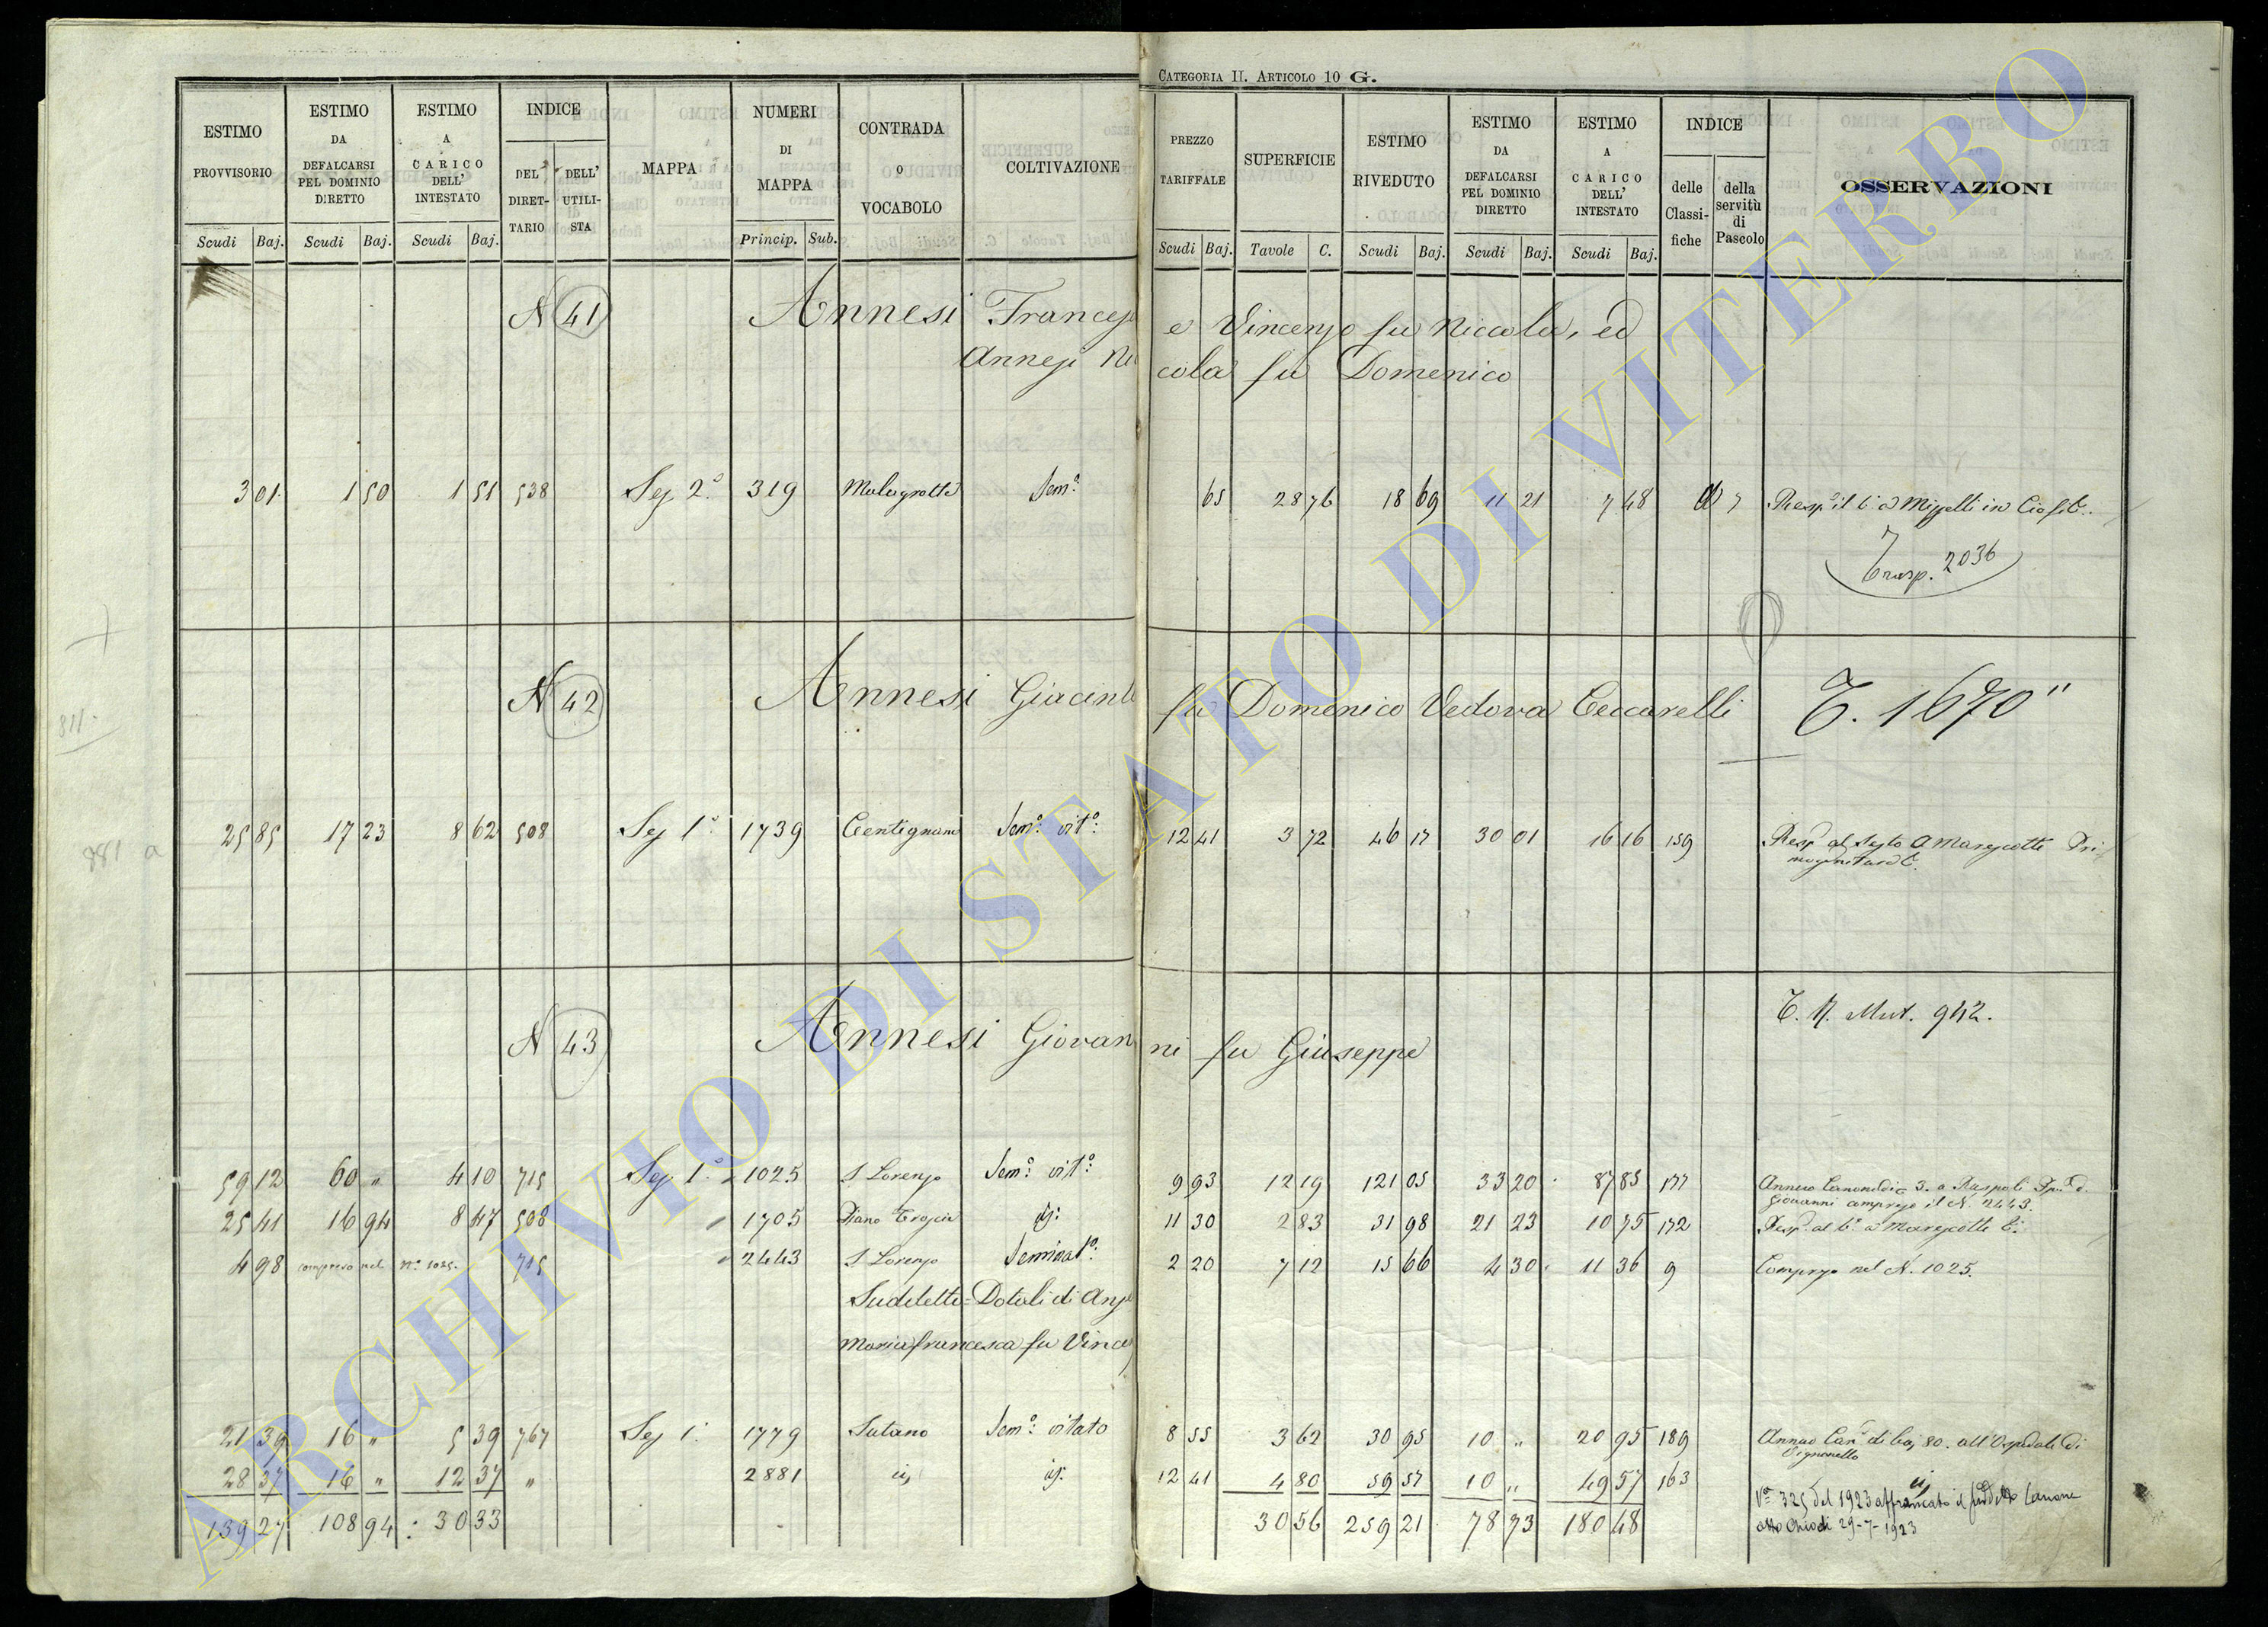 CATEGORIA II. ARTICOLO 10 G.
ESTIMO PROVVISORIO
ESTIMO DA DEFALCARSI PEL DOMINIO DIRETTO
ESTIMO A CARICO DELL' INTESTATO
INDICE
DEL DIRETTARIO
DELL' UTILISTA
MAPPA
NUMERI DI MAPPA
CONTRADA O VOCABOLO
COLTIVAZIONE
PREZZO TARIFFALE
SUPERFICIE
ESTIMO RIVEDUTO
ESTIMO DA DEFALCARSI PEL DOMINIO DIRETTO
ESTIMO A CARICO DELL' INTESTATO
INDICE
delle Classifiche
della servitù di Pascolo
OSSERVAZIONI
Scudi Baj. Scudi Baj. Scudi Baj. Princip. Sub. Scudi Baj. Tavole C. Scudi Baj. Scudi Baj. Scudi Baj.
N 41 Annesi Francesc e Vincenzo fu Niccola, ed
Annesi Nicola fu Domenico
3 01 1 50 1 51 538 Sez 2ª 319 Malagrotta Semº 65 28 76 18 69 11 21 7 48
Trasp. 2036
N 42 Annesi Giacinta fu Domenico Vedova Ceccarelli T. 1670"
811
981 a
25 85 17 23 8 62 508 Sez 1ª 1739 Centignano Semº vitº 12 41 3 72 46 17 30 01 16 16 159 Respe al sesto a Marescotti Primogenitura
T. N. Mut. 942.
N 43 Annesi Giovanni fu Giuseppe
59 12 60 " 4 10 715 Sez 1ª 1025 S Lorenzo Semº vitº 9 93 12 19 121 05 33 20 87 85 177 Annuo Canone di 3. a Ruspoli
Giovanni compreso il N. 2443.
25 41 16 94 8 47 508 " 1705 Piano 11 30 2 83 31 98 21 23 10 75 172 Respe al 6º a Marescotti
4 98 compreso nel nº 1025. 715 " 2443 S Lorenzo Seminatº 2 20 7 12 15 66 4 30 11 36 9 Compreso nel N. 1025.
Suddetto = Dotali di
Mariafrancesca fu Vinc
21 39 16 " 5 39 767 Sez 1ª 1779 Sutano Semº vitato 8 55 3 62 30 95 10 " 20 95 189 Annuo Canº di baj 80. all'Ospedale di
Vignanello
28 37 16 " 12 37 " 2881 id id 12 41 4 80 59 57 10 " 49 57 163 id
Vª 325 del 1923 affrancato il suddetto Canone
139 27 108 94 30 33 30 56 259 21 78 73 180 48
atto Chiodi 29-7-1923
ARCHIVIO DI STATO DI VITERBO